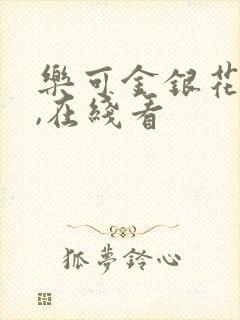 樂可金銀花
,在綫看
狐夢鈴心